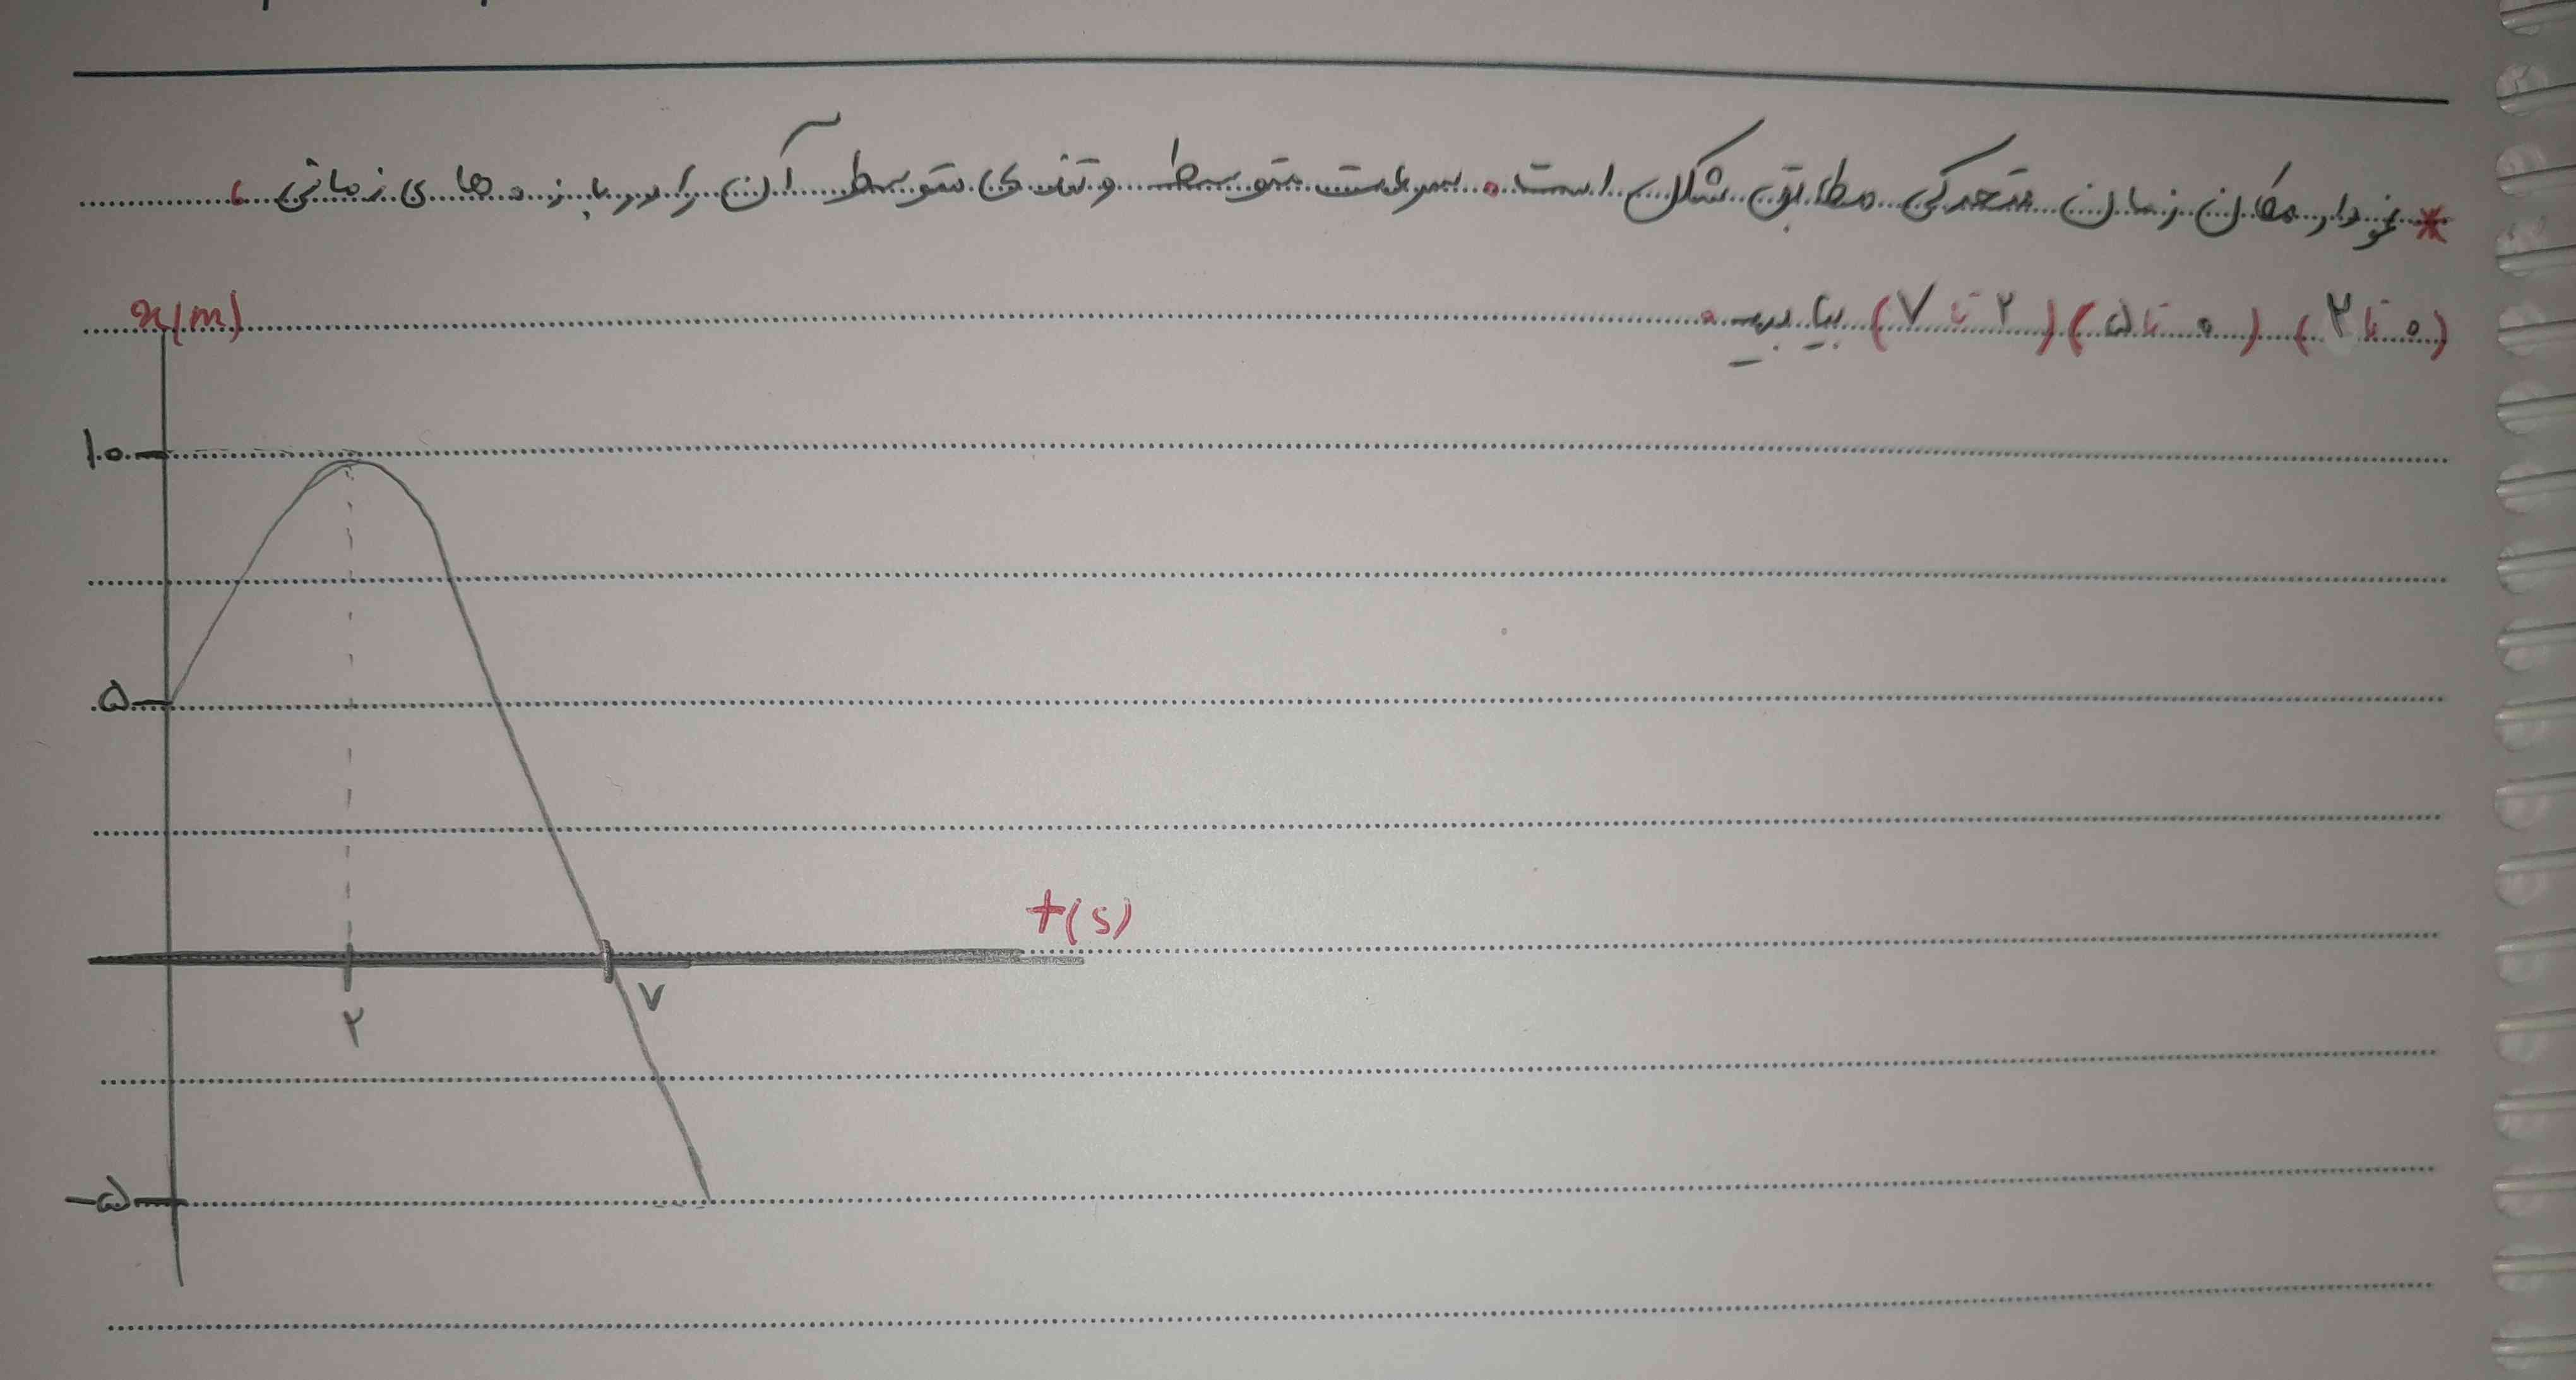 * نمودار مکان زمان متحرکی مطابق شکل است. سرعت متوسط و تندی متوسط آن را در بازه های زمانی،
(۰ تا ۲) (۰ تا ۵) (۲ تا ۷) بیابید.
x(m)
۱۰
۵
t(s)
۲
۷
-۵